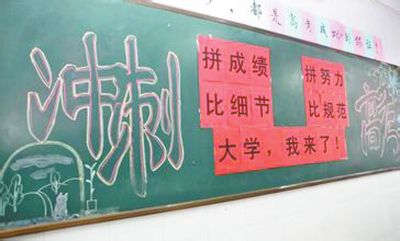 都是高考成功的
冲刺
拼成绩
拼努力
比细节
比规范
大学，我来了！
高考